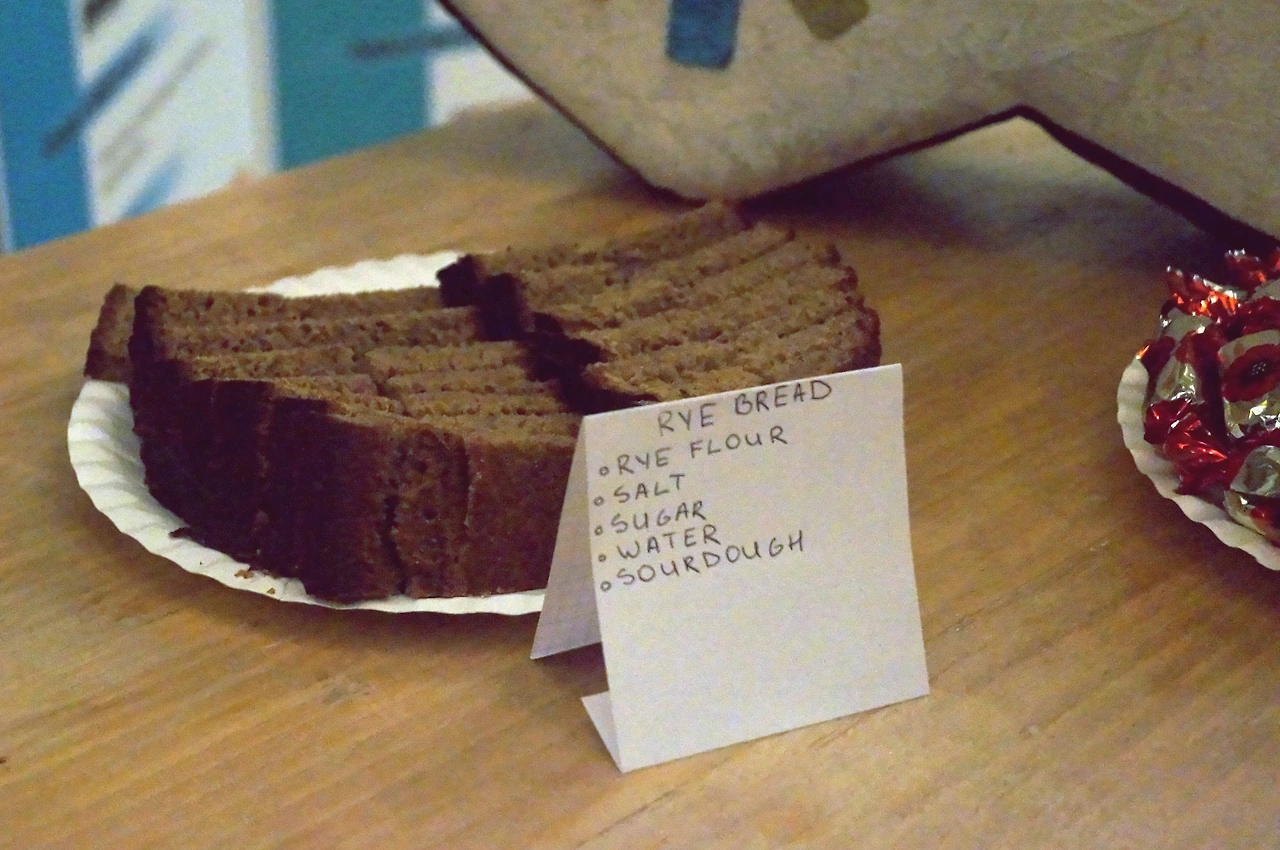 RYE BREAD
∘ RYE FLOUR
∘ SALT
∘ SUGAR
∘ WATER
∘ SOURDOUGH